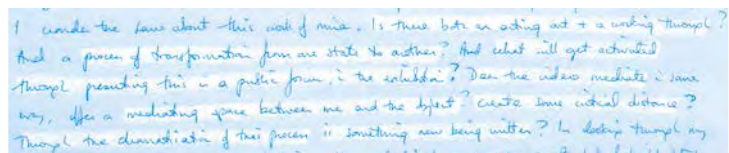 I wonder the same about this work of mine. Is there both an acting out + a working through?
And a process of transformation from one state to another? And what will get activated
through presenting this in a public forum, in the exhibition? Does the video mediate in some
way, offer a mediating space between me and the object? Create some critical distance?
Through the dramatization of this process is something new being written? In looking through my